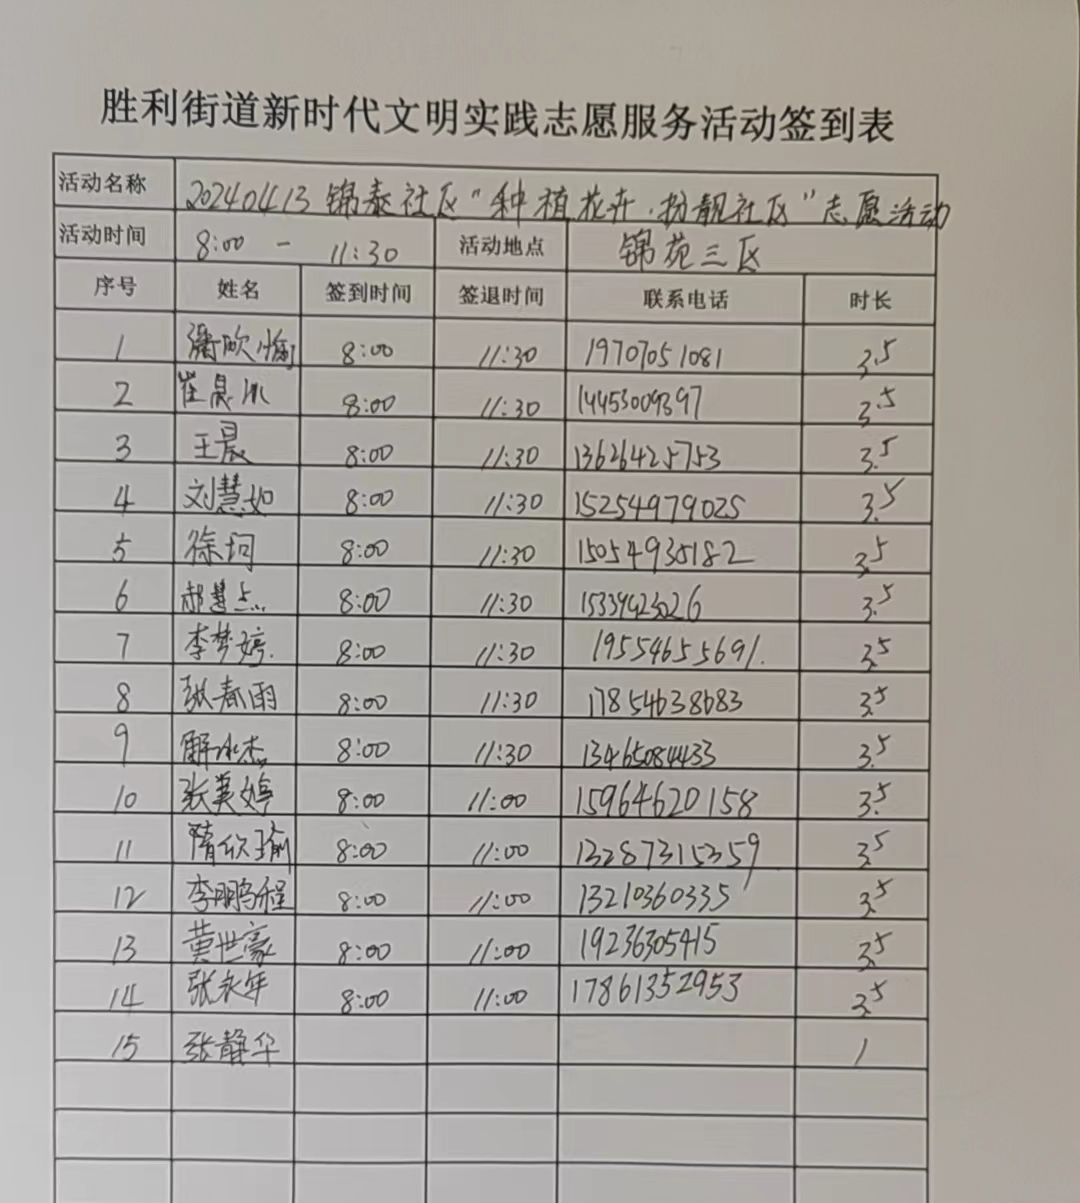 胜利街道新时代文明实践志愿服务活动签到表
活动名称 20240413 锦泰社区"种植花卉.扮靓社区"志愿活动
活动时间 8:00 - 11:30 活动地点 锦苑三区
序号 姓名 签到时间 签退时间 联系电话 时长
1 潘欣愉 8:00 11:30 19707051081 3.5
2 崔晨冰 8:00 11:30 14453009397 3.5
3 王晨 8:00 11:30 13626425753 3.5
4 刘慧如 8:00 11:30 15254979025 3.5
5 徐珂 8:00 11:30 15054935182 3.5
6 郝慧 8:00 11:30 3.5
7 李梦婷. 8:00 11:30 19554655691. 3.5
8 张春雨 8:00 11:30 17854638683 3.5
9 解冰杰 8:00 11:30 13465084433 3.5
10 张英婷 8:00 11:00 15964620158 3.5
11 隋欣瑜 8:00 11:00 13287315359 3.5
12 李鹏程 8:00 11:00 13210360335 3.5
13 黄世豪 8:00 11:00 19236305415 3.5
14 张永年 8:00 11:00 17861352953 3.5
15 张静华 1